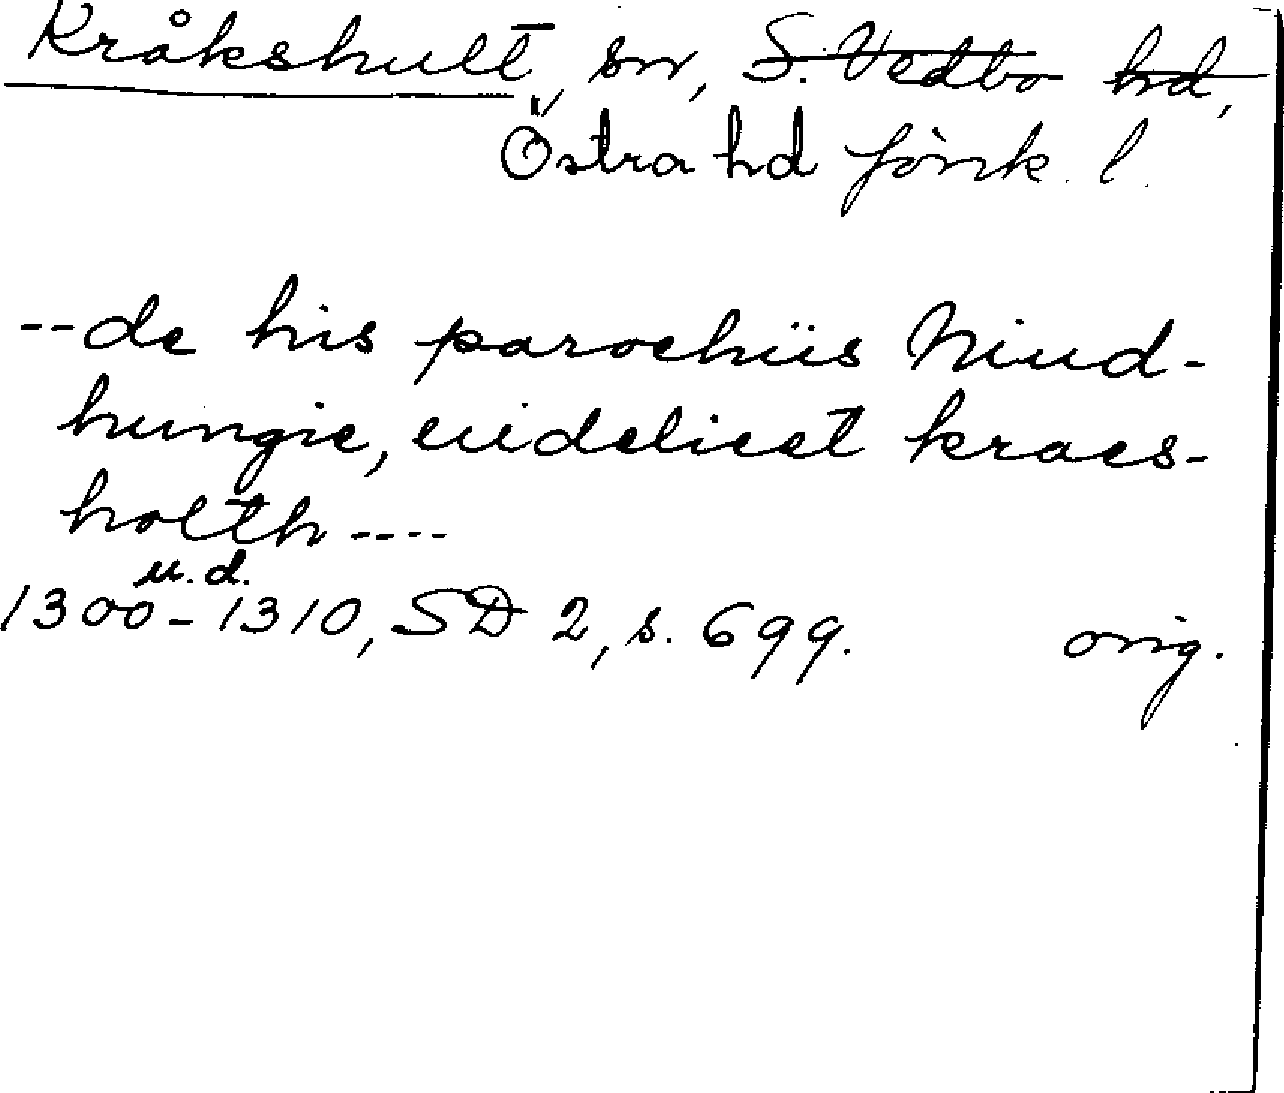 Kråkshult, sn, S. Vedbo hd,
Östra hd Jönk. l.
--de his parochiis Niud-
hungie, uidelicet kracs-
holth----
u.d.
1300-1310, SD 2, s. 699. orig.